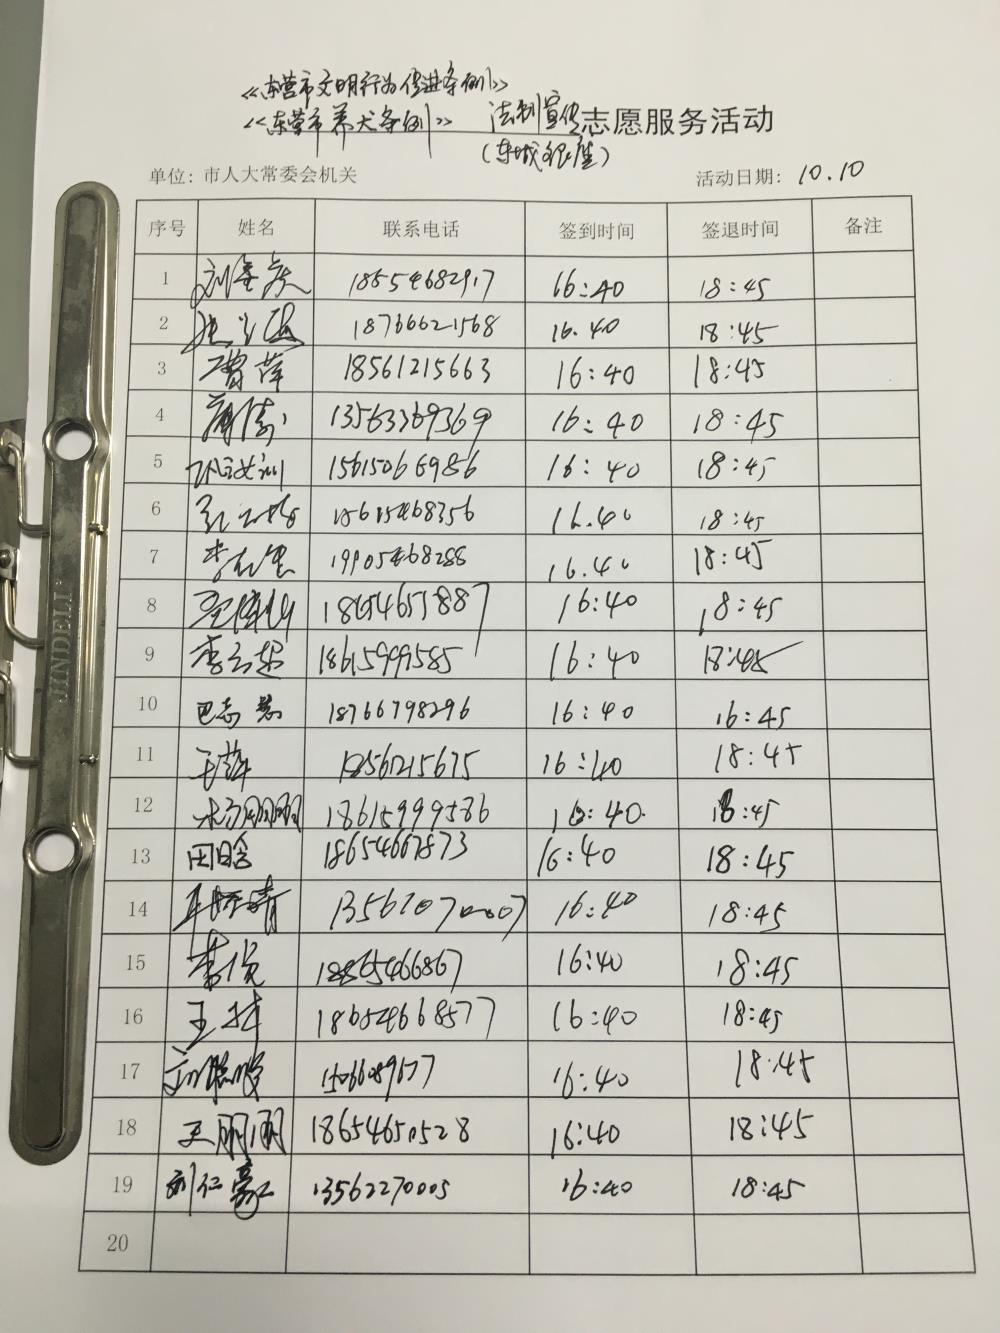 《东营市文明行为促进条例》
《东营市养犬条例》 法制宣传志愿服务活动
(东城银座)
单位：市人大常委会机关 活动日期：10.10
序号 姓名 联系电话 签到时间 签退时间 备注
1 18554682917 16:40 18:45
2 18766621568 16.40 18:45
3 曹萍 18561215663 16:40 18:45
4 13563369369 16:40 18:45
5 15615066986 16:40 18:45
6 15615468356 16.40 18:45
7 19905468288 16.40 18:45
8 16:40 18:45
9 李云超 18615999585 16:40 18:45
10 巴志慧 18766798296 16:40 16:45
11 王萍 18561215675 16:40 18:45
12 杨朋朋 18615999586 16:40. 18:45
13 田晗 18654667873 16:40 18:45
14 16:40 18:45
15 李悦 18865466867 16:40 18:45
16 王 18654668577 16:40 18:45
17 16:40 18:45
18 王丽丽 18654650528 16:40 18:45
19 刘仁豪 13562270005 16:40 18:45
20
JINDELI